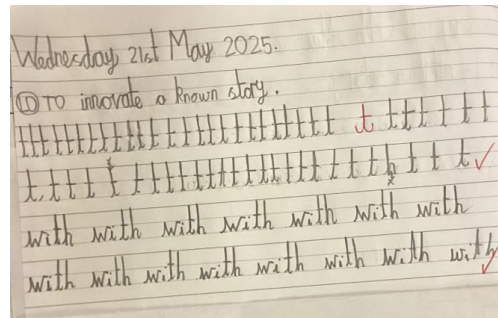 Wednesday 21st May 2025.
LO To innovate a known story.
t t t t t t t t t t t t t t t t t t t t t t t t t t t t t t t t
t t t t t t t t t t t t t t t t t t t t h t t t
with with with with with with with
with with with with with with with with